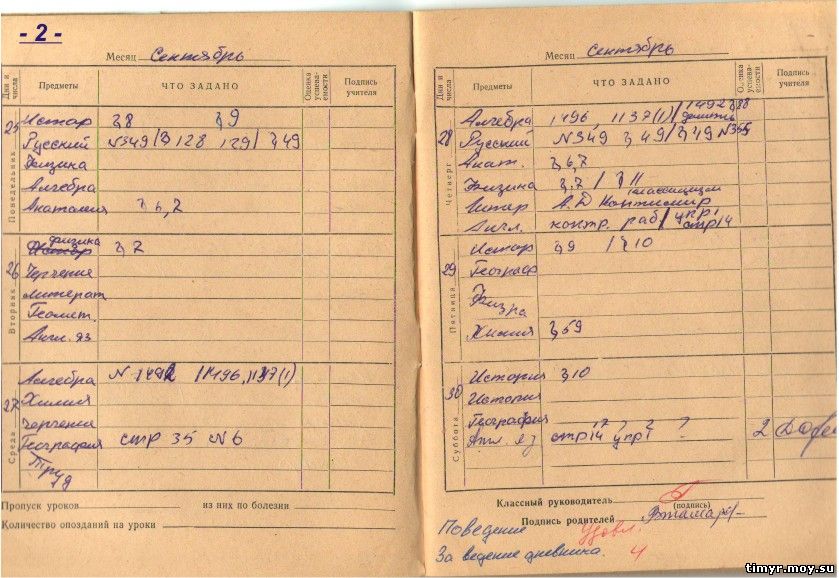 - 2 -
Месяц Сентябрь
Дни и числа Предметы ЧТО ЗАДАНО Оценка успеваемости Подпись учителя
Понедельник 25
Истор § 8 § 9
Русский №349/§ 128 129/ §49
Физика
Алгебра
Анатомия § 6,7
Вторник 26
физика § 7
Черчение
Литерат
Геомет.
Англ. яз
Среда 27
Алгебра 1196, 1137(1)
Химия
Черчение
География стр 35 №6
Труд
Пропуск уроков из них по болезни
Количество опозданий на уроки
Месяц Сентябрь
Дни и числа Предметы ЧТО ЗАДАНО Оценка успеваемости Подпись учителя
Четверг 28
Алгебра 1196, 1137(1)/
Русский №349 § 49/§49
Анат. § 6,7
Физика § 7 / § 11
классицизм
Литер А.Д Кантимир
Англ. контр. раб/ упр 1 стр14
Пятница 29
Истор § 9 / § 10
Географ
Физра
Химия § 59
Суббота 30
История § 10
История
География ? ? ?
Англ. яз стр14 упр1 ? 2
Классный руководитель
(подпись)
Подпись родителей
Поведение Удовл.
За ведение дневника. 4
timyr.moy.su